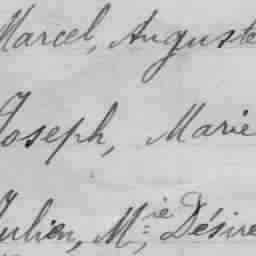 Marcel, Auguste
Joseph, Marie
Julien, M.ie, Désiré